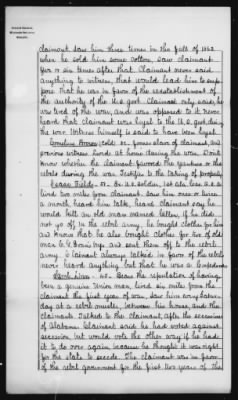 claimant saw him three times in the fall of 1863
when he sold him some cotton, saw claimant
five or six times after that. Claimant never said
anything to witness, that would lead him to sup-
pose that he was in favor of the reestablishment of
the authority of the U.S. govt. Claimant only said, he
was tired of the war, and was opposed to it. Never
heard that claimant was loyal to the U.S. govt. during
the war. Witness himself is said to have been loyal.
Cornelius col'd. 31. slave of claimant, and
previous witness lived at home during the war. Dont
know whether the claimant favored the yankees or the
rebels during the war. Testifies to the taking of property
Isaac Fields U.S. Soldier, 1st Ala. lived
two miles from claimant. Saw him once or twice
a month, heard him talk, heard claimant say he
would kill an old man named if he did
not go off in the rebel army, he bought clothes for him
and knows that he also bought clothes for five of old
man and sent them off to the rebel
army. Claimant always talked in favor of the rebels
never heard anything but that he was a Confederate
45. Bears the reputation of having
been a genuine Union man, lived six miles from the
claimant the first year of war, saw him every Saturday
day at a rebel muster, between his house, and the
claimants. Talked to the claimant, after the secession
of Alabama. Claimant said he had voted against
secession but would vote the other way if he had
it to do over again because he thought it was right
for the state to secede. The claimant was in favor
of the rebel government for the first two years of the